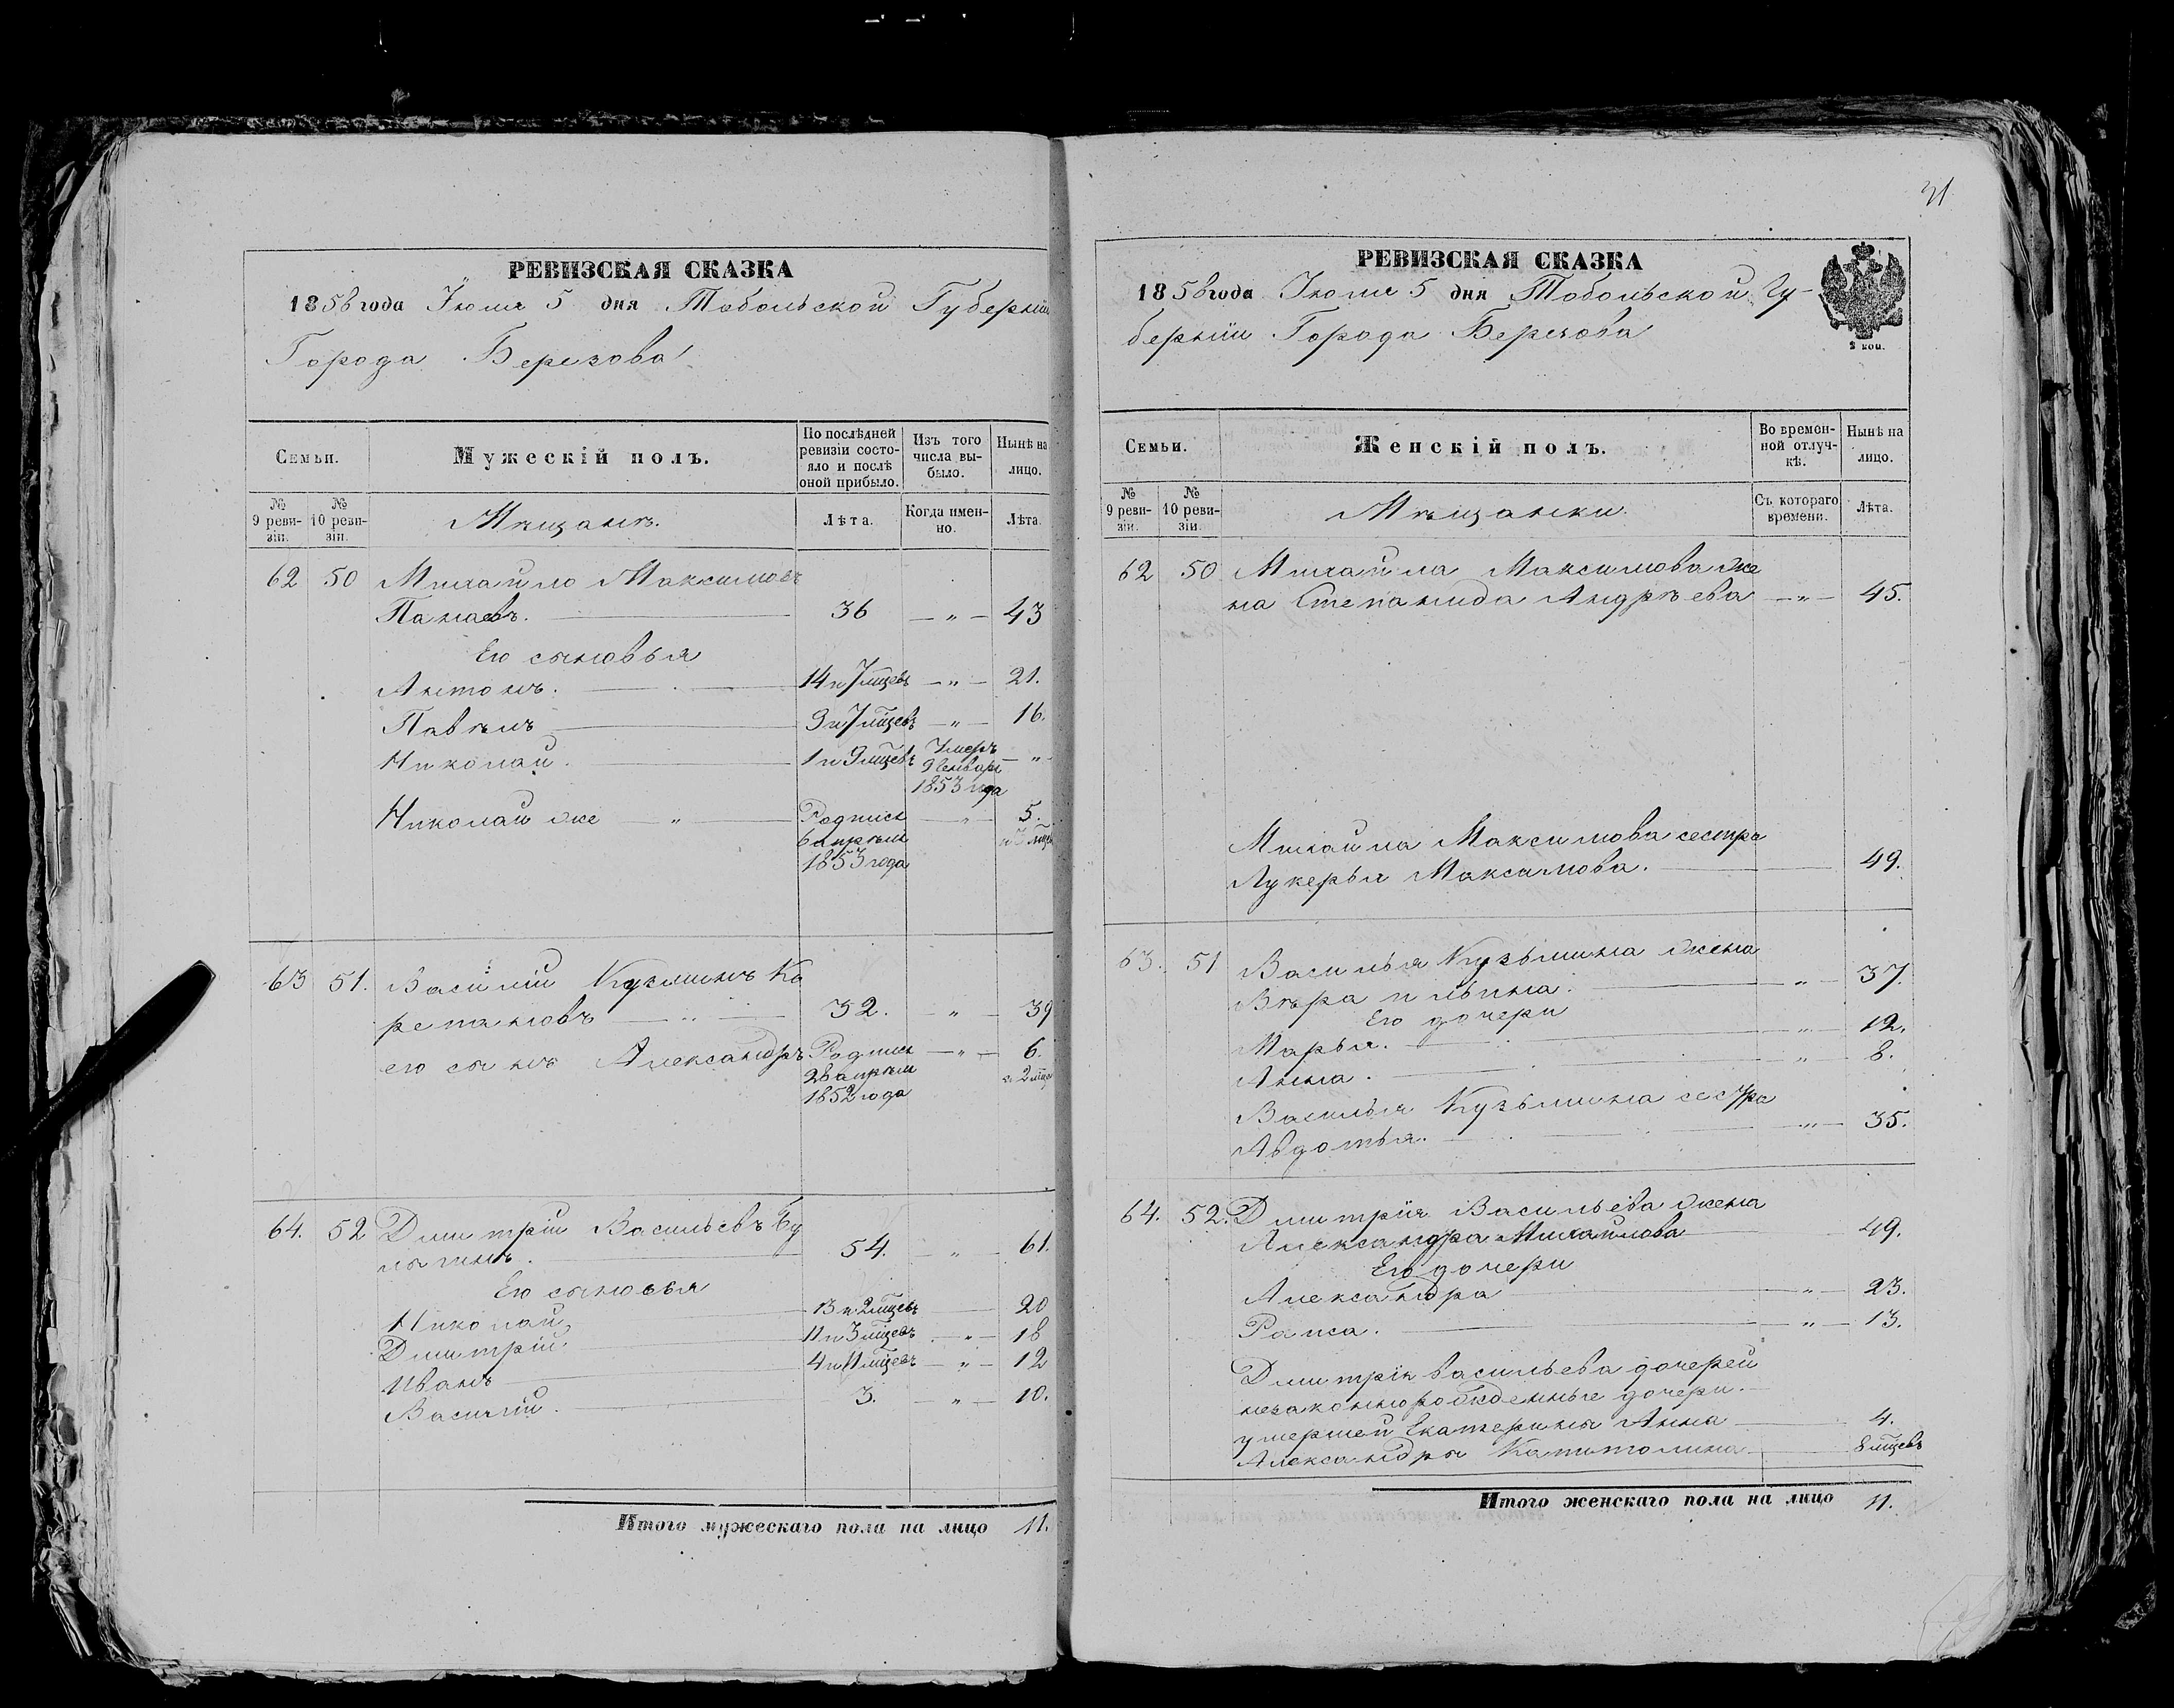 31
РЕВИЗСКАЯ СКАЗКА
1858 года Июля 5 дня Тобольской Губерніи
Города Березова
Семьи.
Мужескій полъ.
По послѣдней ревизіи состояло и послѣ оной прибыло.
Изъ того числа выбыло.
Нынѣ на лицо.
№ 9 ревизіи.
№ 10 ревизіи.
Мѣщане.
Лѣта.
Когда именно.
Лѣта.
62 50 Михайло Максимовъ
Панаевъ. 36 — „ — 43
Его сыновья
Антонъ. 14 и 7 мцевъ — „ — 21.
Павѣлъ 9 и 7 мцевъ — „ — 16.
Николай. 1 и 9 мцевъ Умеръ — „
9 Генваря
1853 года
Николай же — „ — Родился — „ — 5.
6 апрѣля и 3 мца
1853 года
63 51. Василій Кузминъ Ка
репановъ 32. — „ — 39
его сынъ Александръ Родился — „ — 6.
28 апрѣля и 2 мца
1852 года
64. 52 Дмитрій Васильевъ Бу
лыгинъ. 54. — „ — 61.
Его сыновья
Николай, 13 и 2 мцевъ — 20
Дмитрій. 11 и 3 мцевъ — „ — 18
Иванъ 4 и 11 мцевъ — „ — 12
Василій. 3. — „ — 10.
Итого мужескаго пола на лицо 11.
РЕВИЗСКАЯ СКАЗКА
1858 года Июля 5 дня Тобольской Гу-
берніи Города Березова
2 коп.
Семьи.
Женскій полъ.
Во временной отлучкѣ.
Нынѣ на лицо.
№ 9 ревизіи.
№ 10 ревизіи.
Мѣщанки.
Съ котораго времени.
Лѣта.
62 50 Михайла Максимова же
на Степанида Андрѣева — „ — 45.
Михайла Максимова сестра
Лукерья Максимова. 49.
63. 51 Василья Кузьмина жена
Вѣра Ильина. — „ — 37.
Его дочери
Марья. — „ — 12.
Анна. — „ — 8.
Василья Кузьмина сестра
Авдотья. — „ — 35.
64. 52. Дмитрія Васильева жена
Александра Михайлова 49.
Его дочери
Александра — „ — 23.
Раиса. — „ — 13.
Дмитрія Васильева дочерей
незаконнорожденные дочери.
умершей Екатерины Анна 4.
Александры Капитолина 8 мцевъ
Итого женскаго пола на лицо 11.